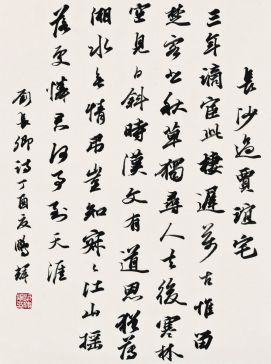 長沙過賈誼宅
三年謫宦此棲遲萬古惟留
楚客悲秋草獨尋人去後寒林
空見日斜時漢文有道恩猶薄
湘水無情吊豈知寂〻江山搖
落處憐君何事到天涯
劉長卿詩丁酉夏鵬輝